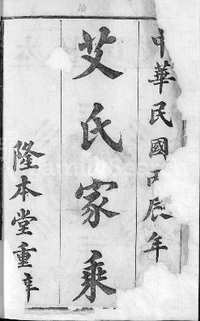 中華民國辰年
艾氏家乘
隆本堂重